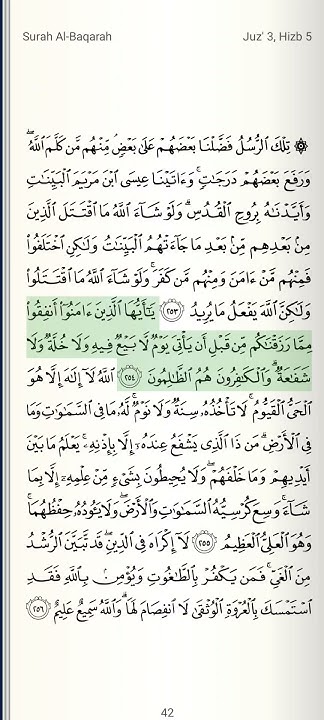 Surah Al-Baqarah
Juz' 3, Hizb 5
۞ تِلْكَ ٱلرُّسُلُ فَضَّلْنَا بَعْضَهُمْ عَلَىٰ بَعْضٍ ۘ مِّنْهُم مَّن كَلَّمَ ٱللَّهُ ۖ
وَرَفَعَ بَعْضَهُمْ دَرَجَـٰتٍ ۚ وَءَاتَيْنَا عِيسَى ٱبْنَ مَرْيَمَ ٱلْبَيِّنَـٰتِ
وَأَيَّدْنَـٰهُ بِرُوحِ ٱلْقُدُسِ ۗ وَلَوْ شَآءَ ٱللَّهُ مَا ٱقْتَتَلَ ٱلَّذِينَ
مِنۢ بَعْدِهِم مِّنۢ بَعْدِ مَا جَآءَتْهُمُ ٱلْبَيِّنَـٰتُ وَلَـٰكِنِ ٱخْتَلَفُوا۟
فَمِنْهُم مَّنْ ءَامَنَ وَمِنْهُم مَّن كَفَرَ ۚ وَلَوْ شَآءَ ٱللَّهُ مَا ٱقْتَتَلُوا۟
وَلَـٰكِنَّ ٱللَّهَ يَفْعَلُ مَا يُرِيدُ ٢٥٣ يَـٰٓأَيُّهَا ٱلَّذِينَ ءَامَنُوٓا۟ أَنفِقُوا۟
مِمَّا رَزَقْنَـٰكُم مِّن قَبْلِ أَن يَأْتِىَ يَوْمٌ لَّا بَيْعٌ فِيهِ وَلَا خُلَّةٌ وَلَا
شَفَـٰعَةٌ ۗ وَٱلْكَـٰفِرُونَ هُمُ ٱلظَّـٰلِمُونَ ٢٥٤ ٱللَّهُ لَآ إِلَـٰهَ إِلَّا هُوَ
ٱلْحَىُّ ٱلْقَيُّومُ ۚ لَا تَأْخُذُهُۥ سِنَةٌ وَلَا نَوْمٌ ۚ لَّهُۥ مَا فِى ٱلسَّمَـٰوَٰتِ وَمَا
فِى ٱلْأَرْضِ ۗ مَن ذَا ٱلَّذِى يَشْفَعُ عِندَهُۥٓ إِلَّا بِإِذْنِهِۦ ۚ يَعْلَمُ مَا بَيْنَ
أَيْدِيهِمْ وَمَا خَلْفَهُمْ ۖ وَلَا يُحِيطُونَ بِشَىْءٍ مِّنْ عِلْمِهِۦٓ إِلَّا بِمَا
شَآءَ ۚ وَسِعَ كُرْسِيُّهُ ٱلسَّمَـٰوَٰتِ وَٱلْأَرْضَ ۖ وَلَا يَـُٔودُهُۥ حِفْظُهُمَا ۚ
وَهُوَ ٱلْعَلِىُّ ٱلْعَظِيمُ ٢٥٥ لَآ إِكْرَاهَ فِى ٱلدِّينِ ۖ قَد تَّبَيَّنَ ٱلرُّشْدُ
مِنَ ٱلْغَىِّ ۚ فَمَن يَكْفُرْ بِٱلطَّـٰغُوتِ وَيُؤْمِنۢ بِٱللَّهِ فَقَدِ
ٱسْتَمْسَكَ بِٱلْعُرْوَةِ ٱلْوُثْقَىٰ لَا ٱنفِصَامَ لَهَا ۗ وَٱللَّهُ سَمِيعٌ عَلِيمٌ ٢٥٦
42